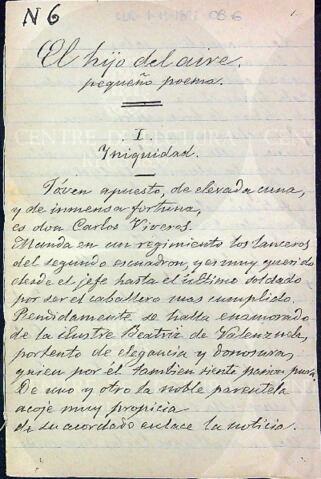 N 6
El hijo del aire.
pequeño poema.
I.
Yniquidad.
Jóven apuesto, de elevada cuna,
y de inmensa fortuna,
es don Carlos Viveros.
Manda en un regimiento los lanceros
del segundo escuadron, y es muy querido
desde el jefe hasta el último soldado
por ser el caballero mas cumplido.
Perdidamente se halla enamorado
de la ilustre Beatriz de Valenzuela,
portento de elegancia y donosura,
quien por él tambien siente pasion pura.
De uno y otro la noble parentela
acoje muy propicia
de su acordado enlace la noticia.